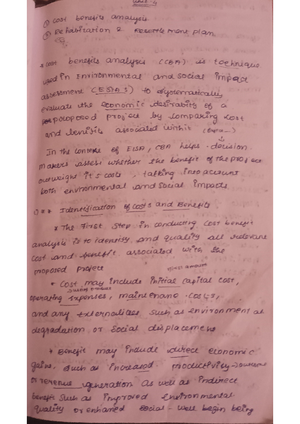 ① Cost benefits analysis
② Rehabilitation & Resettlement plan
* cost benefits analysis (CBA) is technique
used in Environmental and social impact
assessment (ESIA) to systematically
evaluate the economic desirability of a
propoposed project by comparing cost
and benifits associated within
In the context of ESIA, CBA helps decision
makers assess whether the benefit of the project
outweight it's costs, taking into account
both environmental and social impacts
Identification of Costs and Benefits
* The first step in conducting cost benefit
analysis is to identity and quality all relevant
cost and benefit associated with the
proposed project
* Cost may include initial capital cost,
operating expenses, maintenano costs,
and any externalities such as environmental
degradation or social displacement
* Benefit may include direct economic
gains, such as increased productivity
or revenue generation as well as indirect
benefit such as improved environmental
quality or enhanced social well begin being